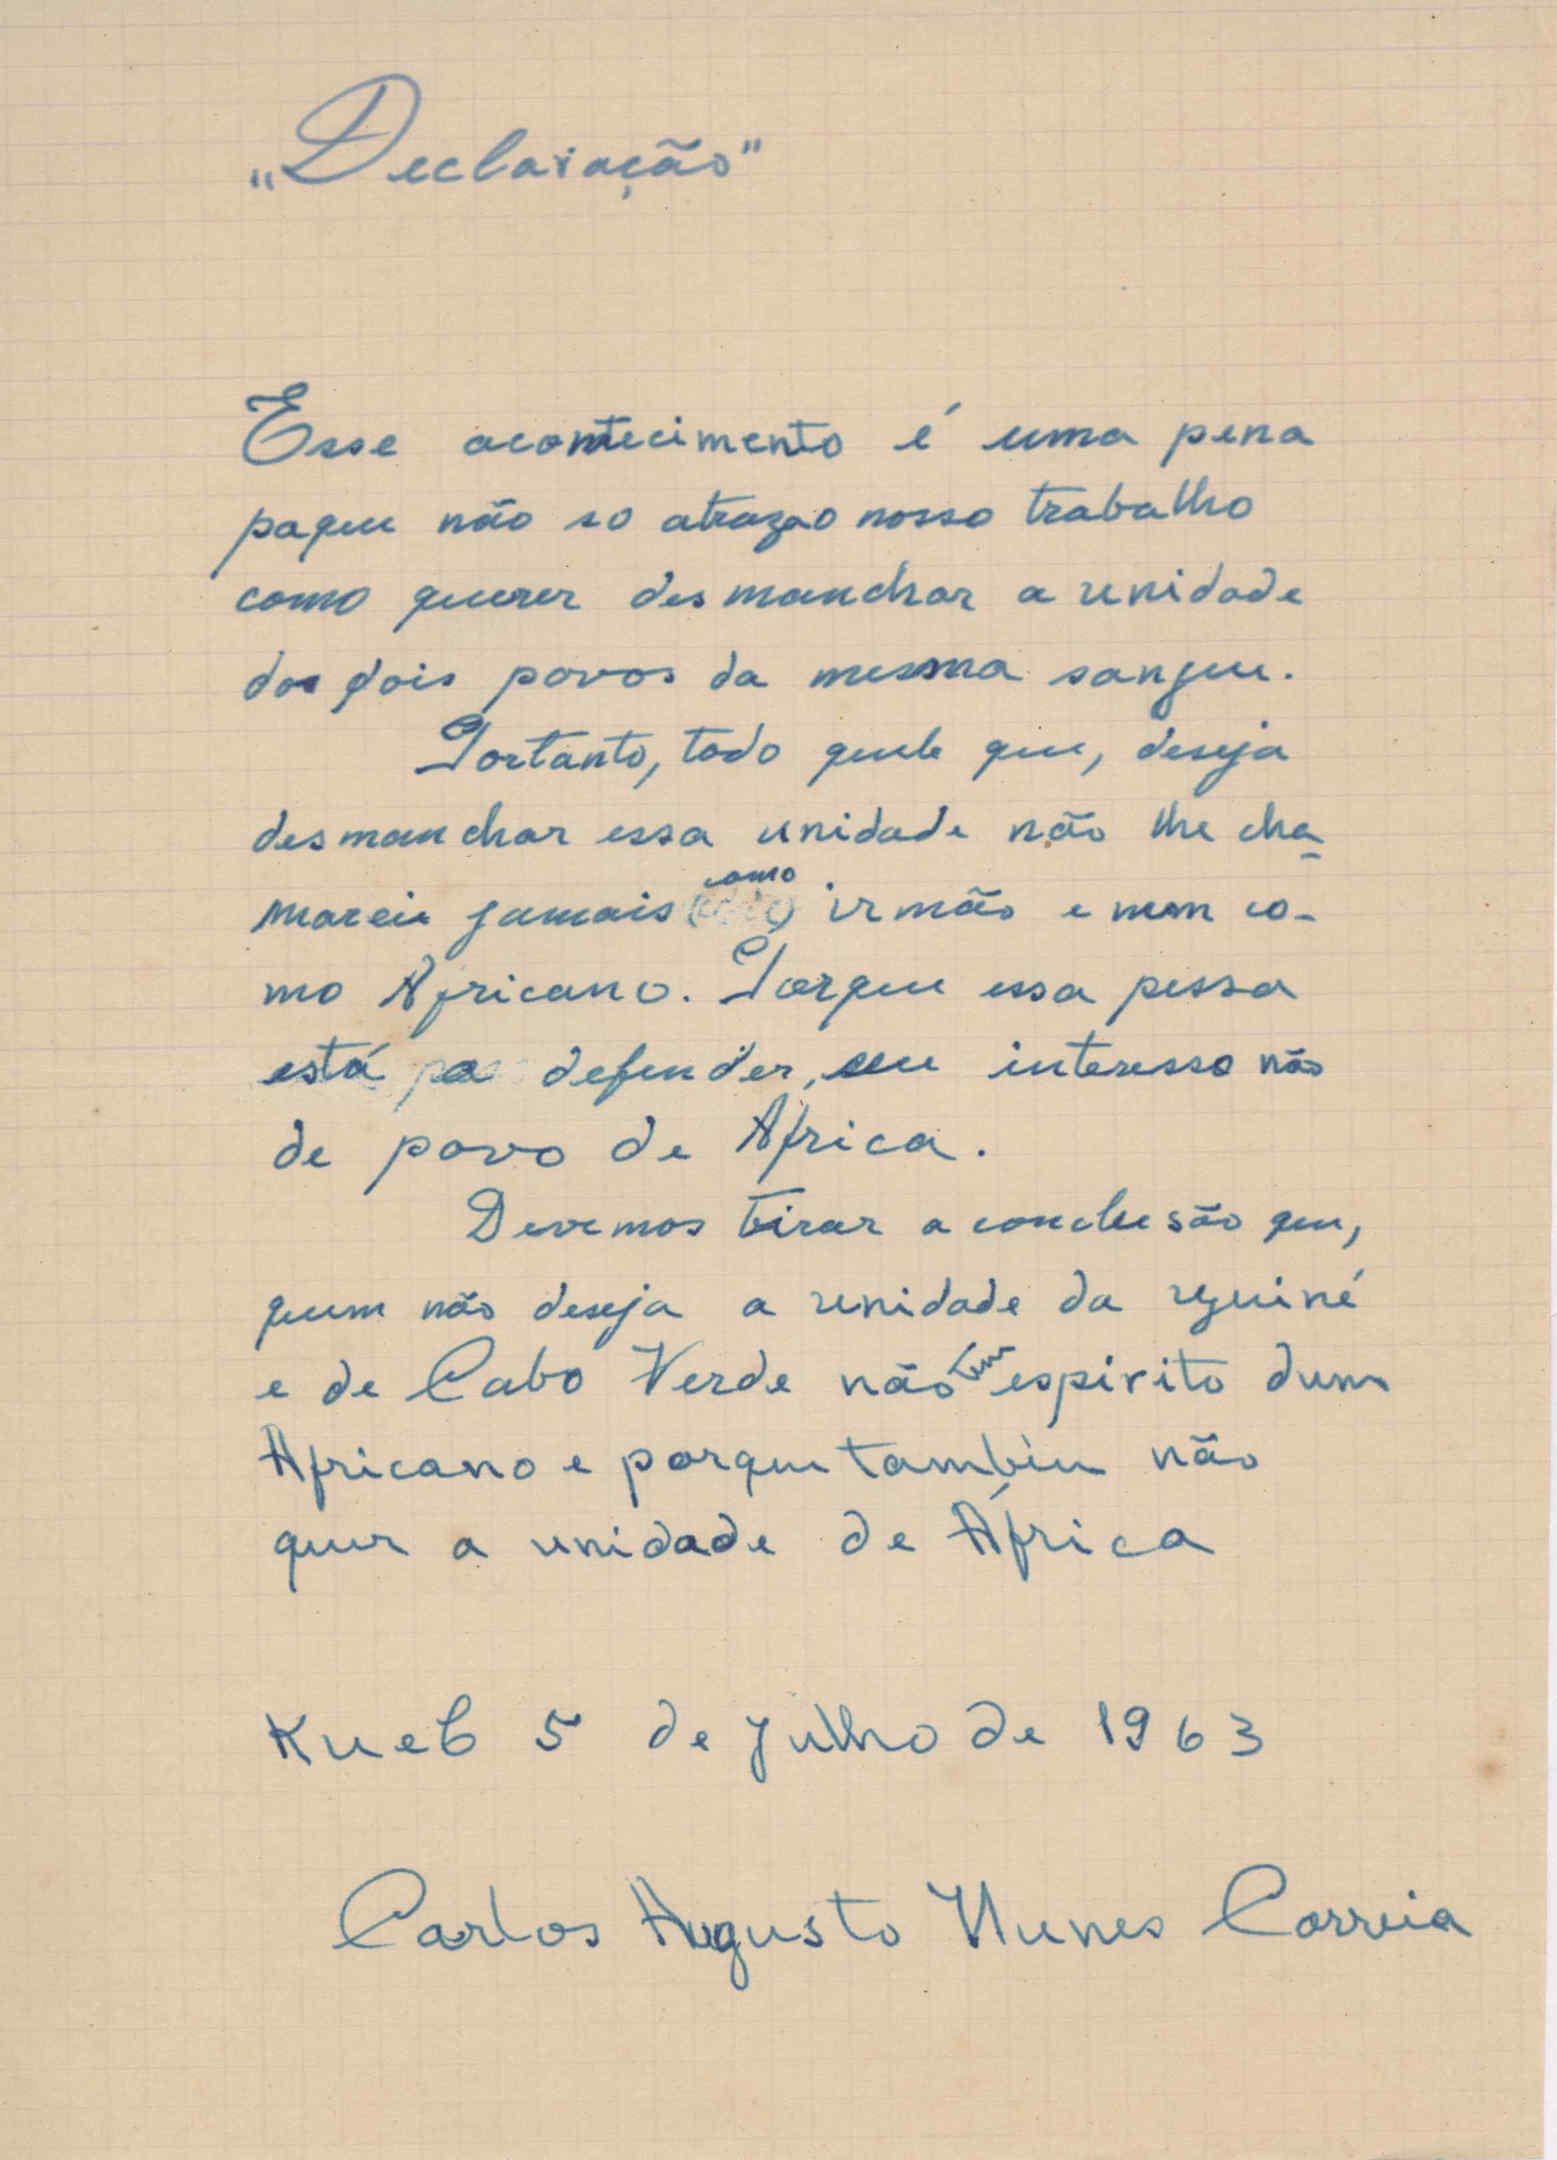 „Declaração"
Esse acontecimento é uma pena
paque não so atraza o nosso trabalho
como querer desmanchar a unidade
dos dois povos da mesma sangue.
Portanto, todo quele que, deseja
desmanchar essa unidade não lhe cha-
marei jamais como irmão e nem co-
mo Africano. Porque essa pessa
está a defender, seu interesso não
de povo de Africa.
Devemos tirar a conclusão que,
quem não deseja a unidade da Guiné
e de Cabo Verde não tem espirito dum
Africano e porque tambèm não
quer a unidade de África
Kueb 5 de Julho de 1963
Carlos Augusto Nunes Correia